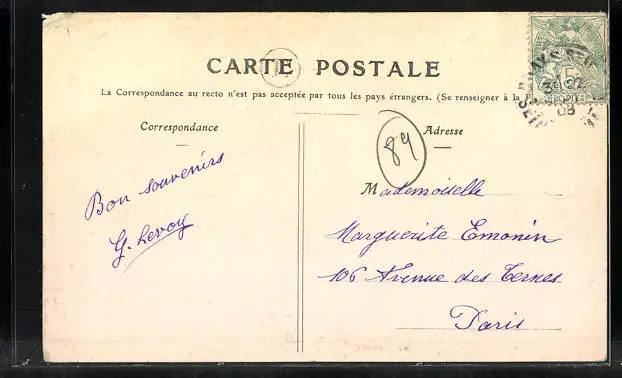 CARTE POSTALE
La Correspondance au recto n'est pas acceptée par tous les pays étrangers. (Se renseigner à la
Correspondance
Adresse
89
Bon souvenirs
G. Levoy
Mademoiselle
Marguerite Emonin
106 Avenue des Ternes
Paris